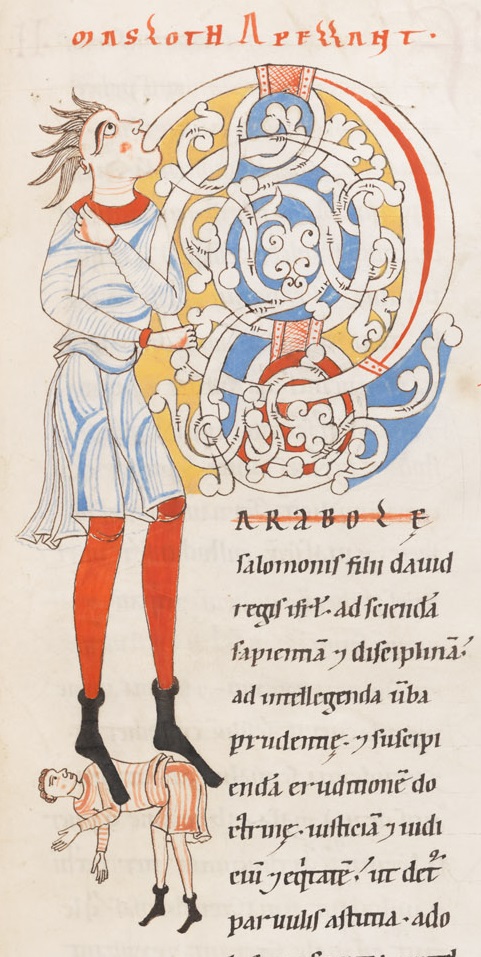 MASLOTH APPELLANT·
P
ARABOLĘ
salomonis filii dauid
regis isrł· ad sciendā
sapientiā ⁊ disciplinā·
ad intellegenda ūba
prudentię· ⁊ suscipi
endā eruditionē do
ctrinę· iusticiā ⁊ iudi
ciū ⁊ eq̇tatē· ut det᷑
paruulis astutia· ado